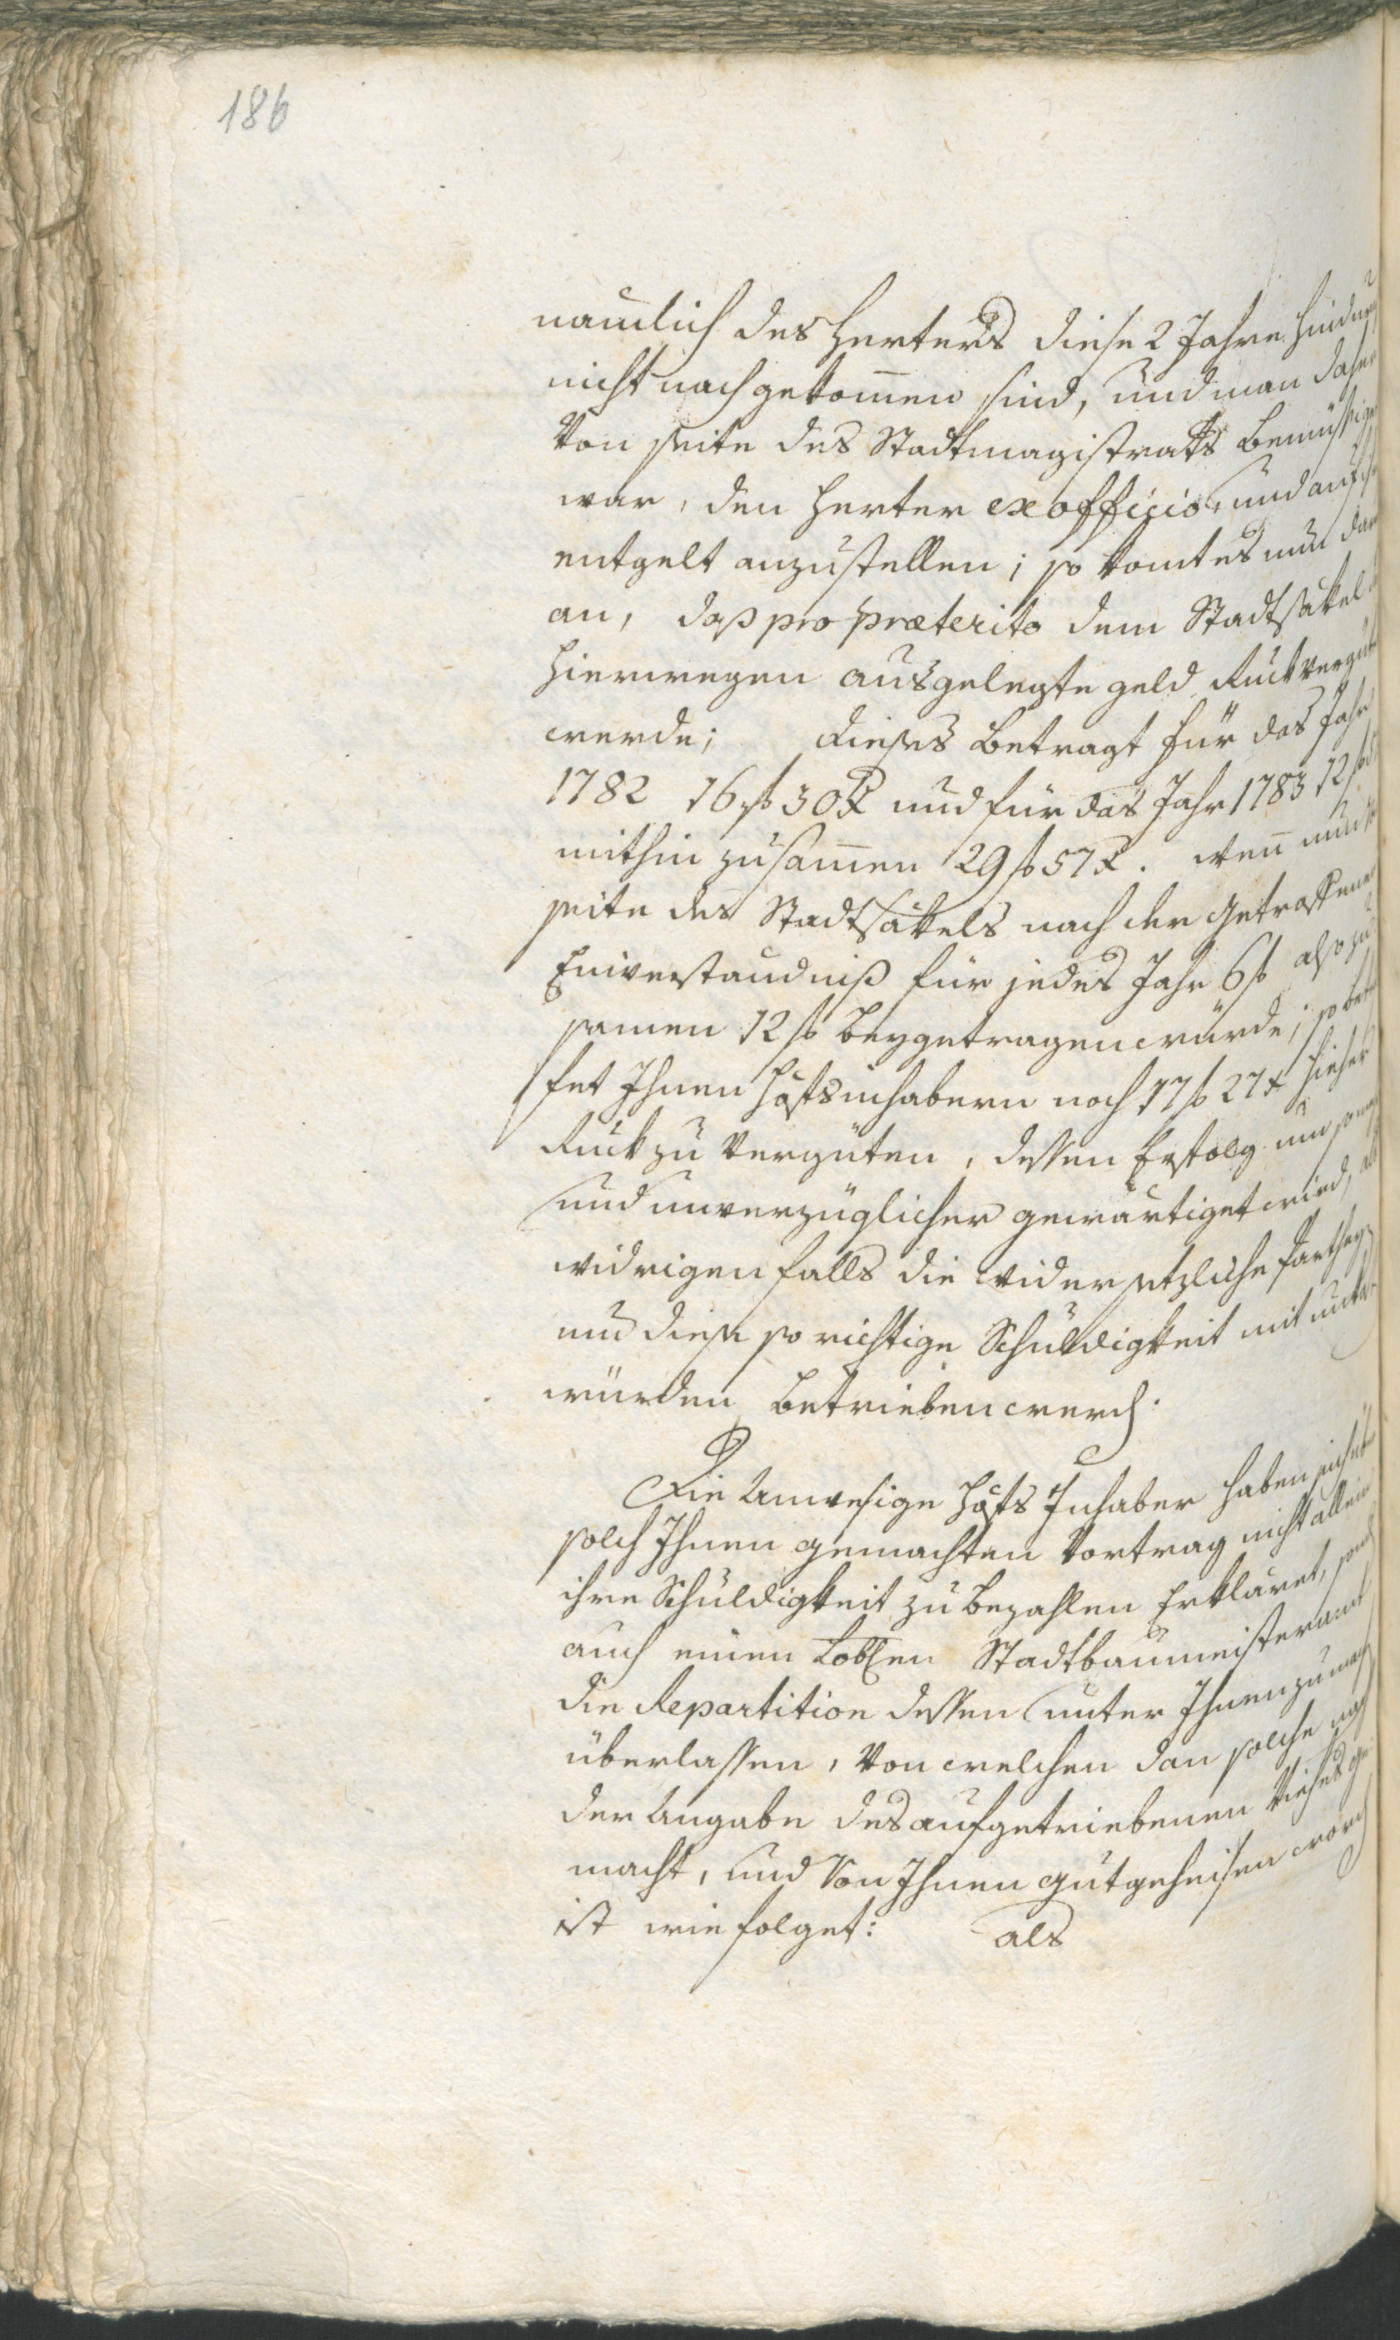 186
namlich des Herters diese 2 Jahre hindurch
nicht nachgekom̄en sind, und man daher
Von seite des Stadtmagistrats bemüssiget
war, den Herter ex officio, und auf
entgelt anzustellen; so komt es nun darauf
an, daß pro præterito dem Stadtsäkel
hierwegen ausgelegte geld Rückvergüt
werde; dieses betragt für das Jahr
1782 16 f 30 x und für das Jahr 1783 12 f
mithin zusam̄en 29 f 57 x. wen̄ nun
seite des Stadtsäkels nach der getroffenen
Einverstandniß für jedes Jahr 6 f also zu
samen 12 f beygetragen wurde; so
fet Ihnen Hofsinhabern noch 17 f 27 x hieher
Rück zu Vergüten, dessen Erfolg um so
und unverzüglicher gewärtiget wird, als
widrigenfalls die widersetzliche Parthey
um diese so richtige Schuldigkeit mit
würden betrieben werd.
Die Anwesige Hofs Inhaber haben sich
solch Ihnen gemachten Vortrag nicht allein
ihre Schuldigkeit zu bezahlen Erkläret, sond
auch einen Loblen Stadtbaumeisteramt
die Repartition dessen unter Ihnen zu mach
überlassen, Von welchen dan solche nach
der Angabe des aufgetriebenen Viehes ge
macht, und Von Ihnen gutgeheisen word
ist wie folget: als